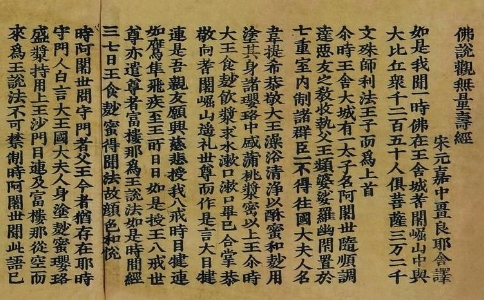 佛說觀無量壽經
宋元嘉中畺良耶舍譯
如是我聞一時佛在王舍城耆闍崛山中與
大比丘衆千二百五十人俱菩薩三万二千
文殊師利法王子而為上首
尒時王舍大城有一太子名阿闍世隨順調
達惡友之敎收執父王頻婆娑羅幽閇置於
七重室內制諸群臣一不得往國大夫人名
韋提希恭敬大王澡浴清淨以酥蜜和麨用
塗其身諸瓔珞中盛蒲桃漿密以上王尒時
大王食麨飲漿求水漱口漱口畢已合掌恭
敬向耆闍崛山遙礼世尊而作是言大目犍
連是吾親友願興慈悲授我八戒時目犍連
如鷹隼飛疾至王所日日如是授王八戒世
尊亦遣尊者富樓那為王說法如是時間經
三七日王食麨蜜得聞法故顏色和悅
時阿闍世問守門者父王今者猶存在耶時
守門人白言大王國大夫人身塗麨蜜瓔珞
盛漿持用上王沙門目連及富樓那從空而
來為王說法不可禁制時阿闍世聞此語已